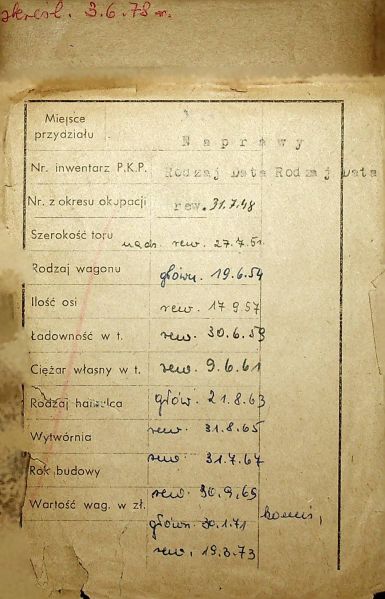 skreśl. 3.6.78 r.
Miejsce przydziału
Naprawy
Nr. inwentarz P.K.P.
Rodzaj Data Rodzaj Data
Nr. z okresu okupacji
rew. 31.7.48
Szerokość toru
nadz. rew. 27.7.51
Rodzaj wagonu
główn. 19.6.54
Ilość osi
rew. 17 9 57
Ładowność w t.
rew. 30.6.59
Ciężar własny w t.
rew. 9.6.61
Rodzaj hamulca
głów. 21.8.63
Wytwórnia
rew. 31.8.65
rew. 31.7.67
Rok budowy
rew. 30.9.69
Wartość wag. w zł.
główn. 30.1.71
rew. 19.3.73